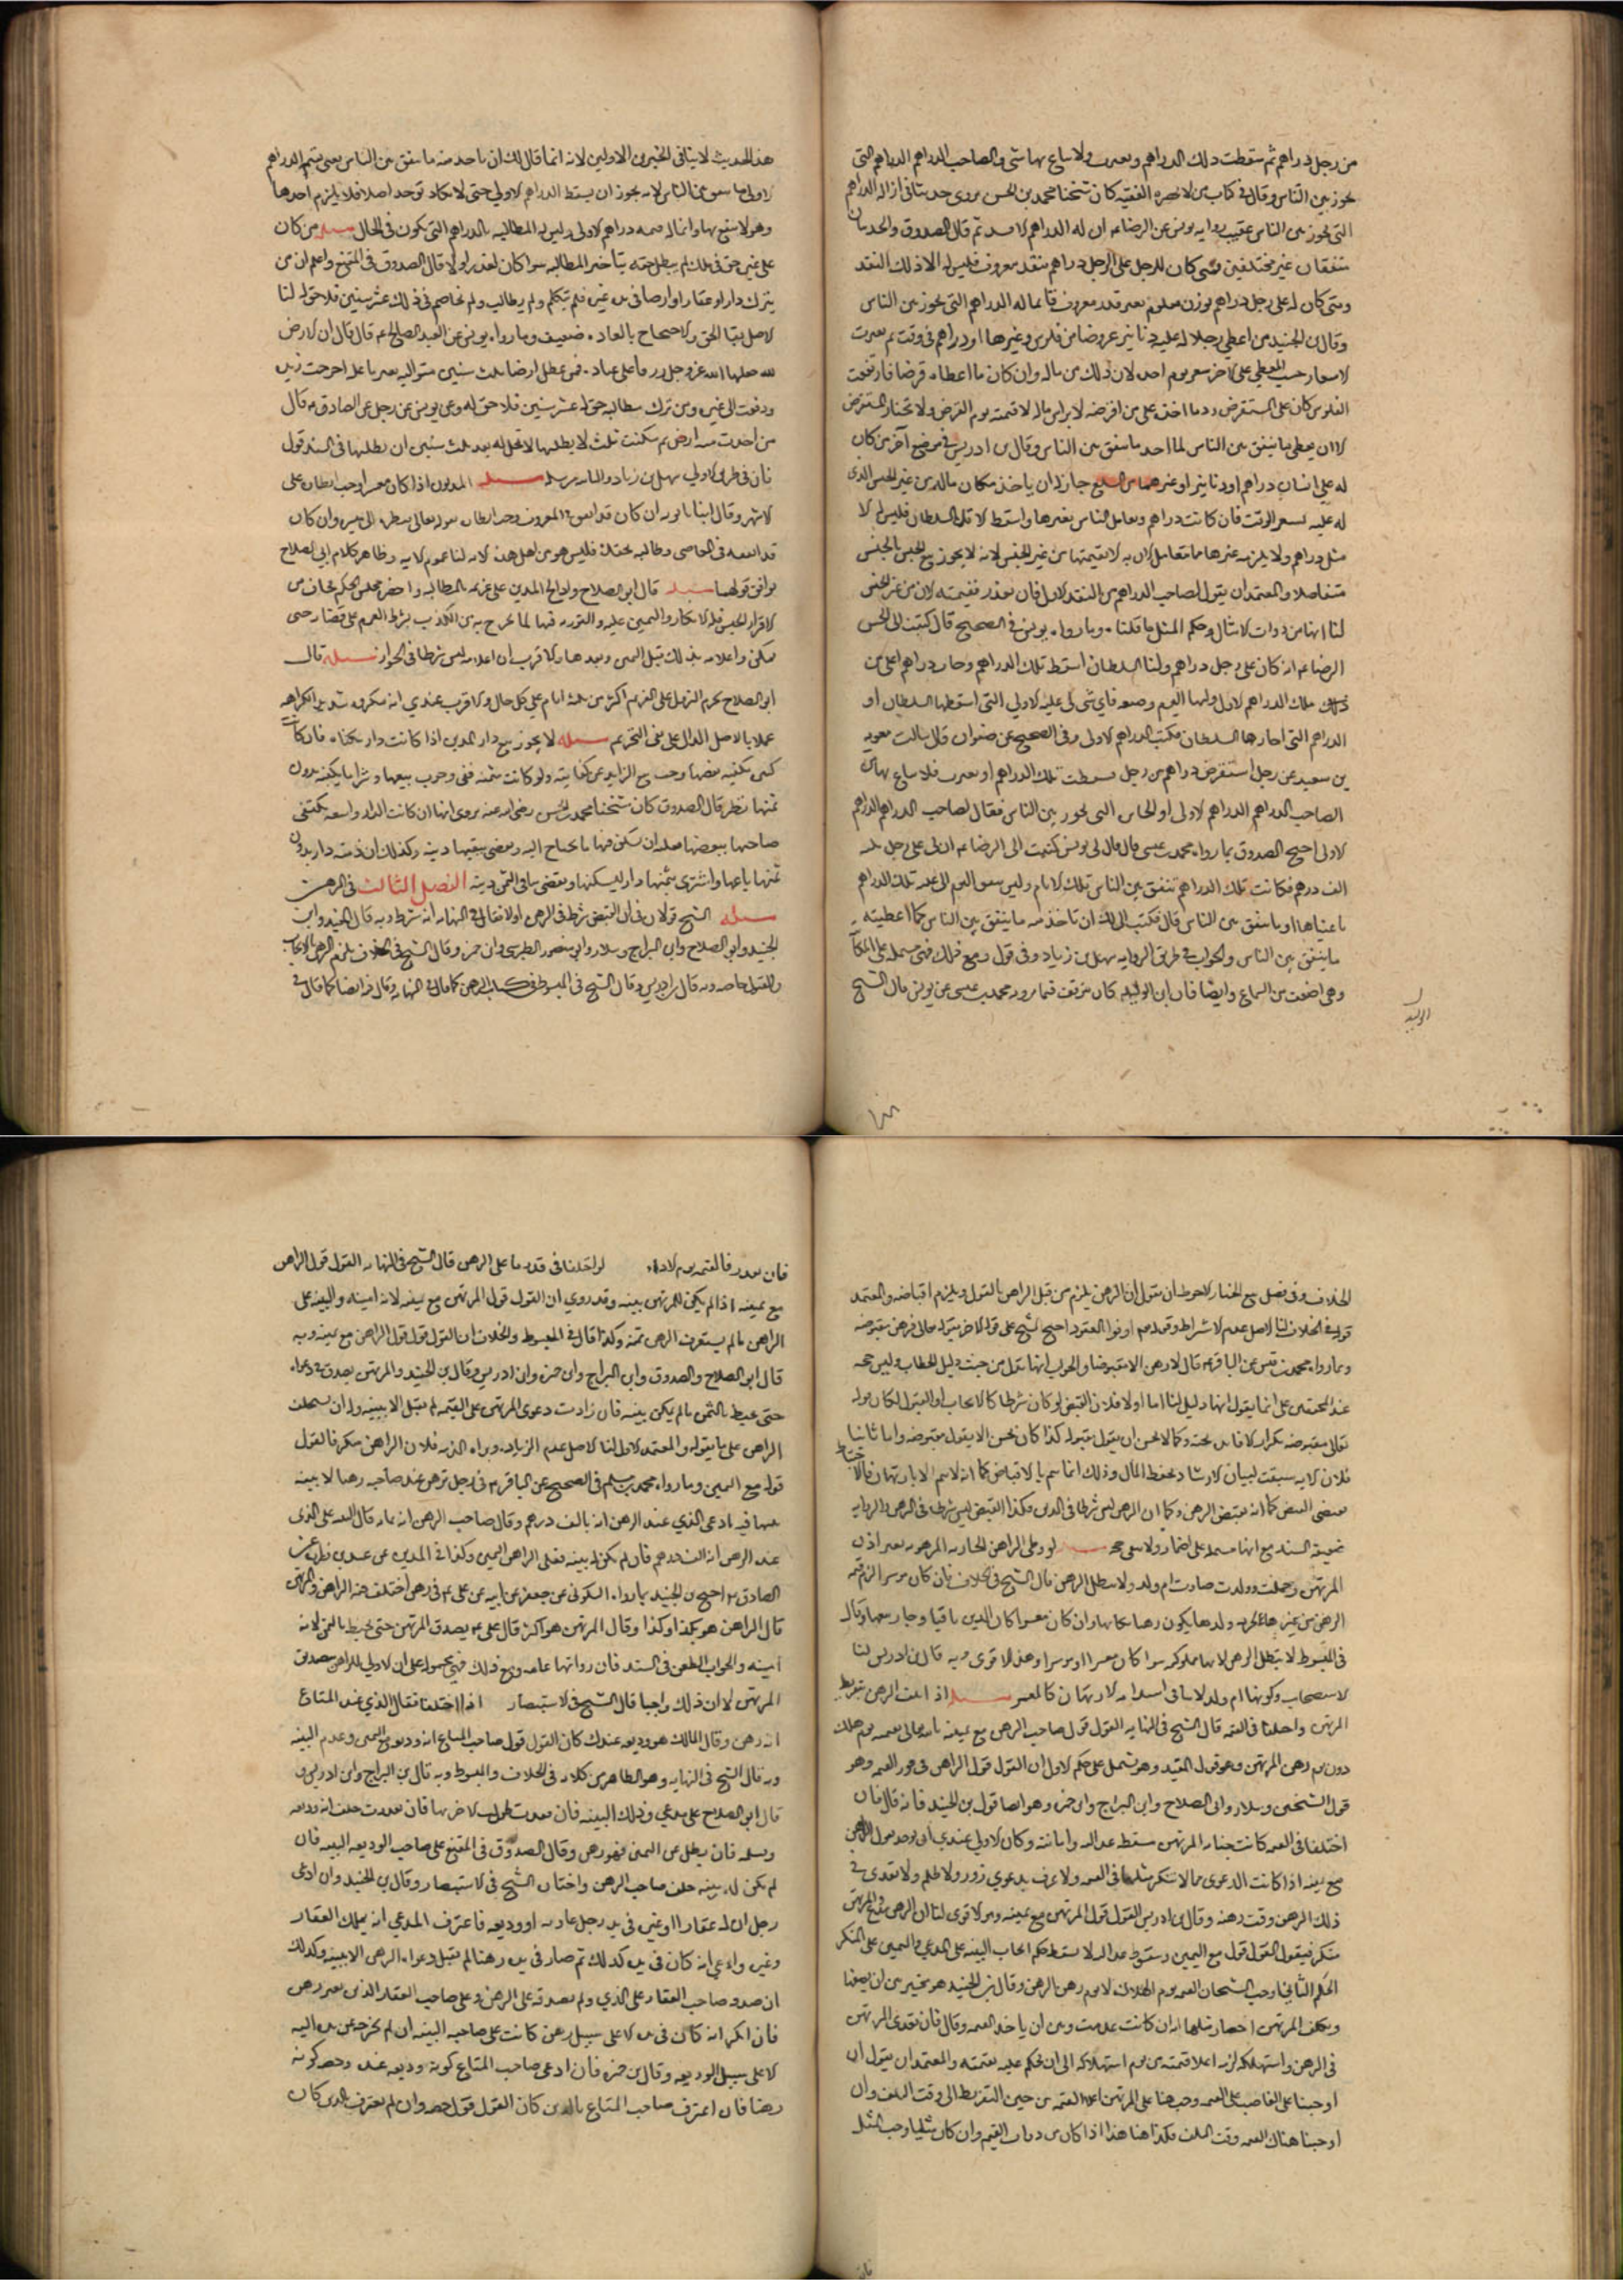 من رجل دراهم ثم سقطت تلك الدراهم وتغيرت ولا يباع بها شي ألصاحب الدراهم الدراهم التي
يجوز بين الناس وقال في كتاب من لا يحضره الفقيه كان شيخنا محمد بن الحسن يروي حديثا في ان له الدراهم
التي تجوز بين الناس عقيب رواية يونس عن الرضا ان له الدراهم الاولى ثم قال الصدوق والحديثان
متفقان غير مختلفين فمتى كان للرجل على الرجل دراهم بنقد معروف فليس له الا ذلك النقد
ومتى كان له على رجل دراهم بوزن معلوم بغير نقد معروف فانما له الدراهم التي تجوز بين الناس
وقال بن الجنيد من اعطى رجلا له عليه دنانير عروضا من فلوس وغيرها او دراهم في وقت ثم تغيرت
الاسعار حسب المعطى على الاخر سعر يوم اخذه لان ذلك من ماله وان كان ما اعطاه قرضا فارتفعت
الفلوس كان على المستقرض رد ما اخذه على من اقرضه لا براس ماله لا قيمته يوم القرض ولا يختار المستقرض
الا ان يعطي ما ينفق بين الناس لما اخذ ما ينفق بين الناس وقال بن ادريس في موضع آخر من كان
له على انسان دراهم او دنانير او غيرهما من السلع جاز له ان ياخذ مكان ماله من غير الجنس الذي
له عليه بسعر الوقت فان كانت دراهم وتعامل الناس بغيرها واسقط الاولة السلطان فليس له الا
مثل دراهمه ولا يلزمه غيرها مما تتعامل الان به الا بقيمتها من غير الجنس لانه لا يجوز بيع الجنس بالجنس
متفاضلا والمعتمد ان يقول لصاحب الدراهم من النقد الاول فان تعذر فقيمته الان من غير الجنس
لنا انها من ذوات الامثال وحكم المثل ما قلناه وما رواه يونس في الصحيح قال كتبت الى ابي الحسن
الرضا انه كان على رجل دراهم وان السلطان اسقط تلك الدراهم وجات دراهم اعلى من
تلك الدراهم الاولى ولها اليوم وضيعة فاي شي لي عليه الاولى التي اسقطها السلطان او
الدراهم التي اجازها السلطان فكتب الدراهم الاولى وفي الصحيح عن صفوان قال سالت معوية
بن سعيد عن رجل استقرض دراهم من رجل وسقطت تلك الدراهم او تغيرت فلا يباع بها شي
الصاحب الدراهم الدراهم الاولى او الجايزة التي تجوز بين الناس فقال لصاحب الدراهم الدراهم
الاولى احتج الصدوق بما رواه محمد بن عيسى قال قال لي يونس كتبت الى الرضا ان لي على رجل ثلثة
الف درهم فكانت تلك الدراهم تنفق بين الناس تلك الايام وليس تنفق اليوم الي عليه تلك الدراهم
باعيانها او ما ينفق بين الناس قال فكتب الي لك ان تاخذ منه ما ينفق بين الناس كما اعطيته
ما ينفق بين الناس والجواب في طريق الرواية سهل بن زياد وفيه قول ومع ذلك فهي مشتملة على المكاتبة
وهي اضعف من السماع وايضا فان ابن الوليد كان يتوقف فيما يرويه محمد بن عيسى عن يونس قال الشيخ
الوليد
هذا الحديث لا ينافي الخبرين الاولين لانه انما قال لك ان ياخذ منه ما ينفق بين الناس يعني بقيمة الدراهم
الاولى ما ينفق بين الناس لانه يجوز ان يسقط الدراهم الاولى حتى لا يكاد توجد اصلا فلا يلزم اخذها
وهو لا ينتفع بها وانما له قيمة دراهمه الاولى وليس له المطالبة بالدراهم التي تكون في الحال مسئلة من كان
على غيره حق في ملك لم يبطل حقه بتاخير المطالبة سواء كان لعذر او لا قال الصدوق في المقنع واعلم ان من
يترك دارا وعقارا او ارضا في يد غيره فلم يتكلم ولم يطالب ولم يخاصم في ذلك عشر سنين فلا حق له لنا
الاصل بقا الحق والاحتجاج بالعادة ضعيف وما رواه يونس عن العبد الصالح قال قال ان الارض
لله جعلها الله عز وجل رزقا على عباده فمن عطل ارضا ثلث سنين متوالية بغير ما علة اخرجت من يده
ودفعت الى غيره ومن ترك مطالبة حق له عشر سنين فلا حق له وعن يونس عن رجل عن الصادق قال
من اخذت منه ارض ثم مكثت ثلث لا يطلبها لا تحل له بعد ثلث سنين ان يطلبها في السند قول
فان في طريق الاولى سهل بن زياد والثانية مرسلة مسئلة المديون اذا كان معسرا وجب انظاره على
الاشهر وقال ابنا بابويه ان كان قد انفقه بالمعروف وجب انظاره لقوله تعالى فنظرة الى ميسرة وان كان
قد انفقه في المعاصي وطالبه بحقك فليس هو من اهل هذه الاية لنا عموم الاية وظاهر كلام ابي الصلاح
يوافق قولهما مسئلة قال ابو الصلاح واذا الح المدين على غريمه بالمطالبة واحضر مجلس الحكم فخاف من
الاقرار الحبس فله الانكار واليمين عليه والتورية فيها لما يخرج به من الكذب بشرط العزم على قضاء حتى
تمكن واعلامه بذلك قبل اليمين وبعدها والاقرب ان اعلامه ليس شرطا في الجواز مسئلة قال
ابو الصلاح يحرم النزول على الغريم اكثر من ثلثة ايام على كل حال والاقرب عندي انه مكروه شديد الكراهة
عملا بالاصل الدال على نفي التحريم مسئلة لا يجوز بيع دار المدين اذا كانت دار سكناه فان كان
كان يكفيه بعضها وجب بيع الزايد عن كفايته ولو كانت ثمينة ففي وجوب بيعها وشرا ما يكفيه بدون
ثمنها نظر قال الصدوق كان شيخنا محمد بن الحسن رضي الله عنه يروي انها ان كانت الدار واسعة يكتفي
صاحبها ببعضها فعليه ان يسكن فيها ما يحتاج اليه ويقضي ببقيتها دينه وكذلك ان كفته دار بدون
ثمنها باعها واشترى بثمنها دارا ليسكنها ويقضي بباقي الثمن دينه الفصل الثالث في الرهن
مسئلة الشيخ قولان في ان القبض شرط في الرهن اولا فقال في النهاية انه شرط وبه قال المفيد وابن
الجنيد وابو الصلاح وابن البراج وسلار وابو منصور الطبرسي وابن حمزة وقال الشيخ في الخلاف يلزم الرهن بالايجاب
والقبول خاصة وبه قال بن ادريس وقال الشيخ في المبسوط في كتاب الرهن كما قال في النهاية وقال فيه ايضا كما قال في
الخلاف وفي فصل بيع الخيار الاحوط ان نقول ان الرهن يلزم من قبل الراهن بالقول ويلزم اقباضه والمعتمد
قوله في الخلاف لنا الاصل عدم الاشتراط وقوله تعالى اوفوا بالعقود احتج الشيخ على قوله الاخر بقوله تعالى فرهن مقبوضة
وبما رواه محمد بن قيس عن الباقر قال لا رهن الا مقبوضا والجواب انها تدل من حيث دليل الخطاب وليس حجة
عند المحققين على انا نقول انها دليل لنا اما اولا فلان القبض لو كان شرطا كالايجاب والقبول لكان قوله
تعالى مقبوضة تكرارا لا فايدة تحته وكما لا يحسن ان يقول مقبولة كذا كان يحسن الا يقول مقبوضة واما ثانيا
فلان الاية سبقت لبيان الارشاد بحفظ المال وذلك انما يتم بالاقباض كما انه لا يتم الا بالارتهان فالاحتياط
يقتضي القبض كما انه يقتضي الرهن وكما ان الرهن ليس شرطا في الدين فكذا القبض ليس شرطا في الرهن والرواية
ضعيفة السند مع انها مشتملة على اضمار ولا تبقى حجة مسئلة لو وطى الراهن الجارية المرهونة بغير اذن
المرتهن وحملت وولدت صارت ام ولد ولا يبطل الرهن قال الشيخ في الخلاف فان كان موسرا الزم قيمة
الرهن من غيرها لحرمة ولدها يكون رهنا مكانها وان كان معسرا كان الدين باقيا وجاز بيعها وقال
في المبسوط لا يبطل الرهن لانها مملوكته سوا كان معسرا او موسرا وهذا الاقوى وبه قال بن ادريس لنا
الاستصحاب وكونها ام ولد لا ينافي استدامة الارتهان كالمعسر مسئلة اذا تلف الرهن بتفريط
المرتهن واختلفا في القيمة قال الشيخ في النهاية القول قول صاحب الرهن مع يمينه بالله تعالى بقيمته يوم هلك
دون يوم رهن المرتهن وهو قول المفيد وهو يشتمل على حكم الاول ان القول قول الراهن في قدر القيمة وهو
قول الشيخين وسلار وابي الصلاح وابن البراج وابن حمزة وهو ايضا قول بن الجنيد فانه قال فان
اختلفا في القيمة كانت جناية المرتهن مسقطة عدالته وامانته وكان الاولى عندي ان يؤخذ بقول الراهن
مع يمينه اذا كانت الدعوى مما لا يستنكر مثلها في القيمة ولا عرف بدعوى زور ولا ظلم ولا تعدى في
ذلك الرهن وقت رهنه وقال بن ادريس القول قول المرتهن مع يمينه وهو الاقوى لنا ان الراهن مدع والمرتهن
منكر فيقول القول قوله مع اليمين وسقوط عدالته لا يسقط حكم ايجاب البينة على المدعي واليمين على المنكر
الحكم الثاني اوجب الشيخان القيمة يوم الهلاك لا يوم رهن الرهن وقال بن الجنيد هو مخير بين ان يصفها
ويكلف المرتهن احضار مثلها ان كانت عدمت وبين ان ياخذ القيمة وقال فان تعدى المرتهن
في الرهن واستهلكه لزمه اعلا قيمته من يوم استهلاكه الى ان يحكم عليه بقيمته والمعتمد ان يقول ان
اوجبنا على الغاصب اعلى القيمة وجب هنا على المرتهن اعلا القيمة من حين التفريط الى وقت التلف وان
اوجبنا هناك القيمة وقت التلف فكذا هنا هذا اذا كان من ذوات القيم وان كان مثليا وجب المثل
فان
فان تعذر فالقيمة يوم الاداء لو اختلفا في قدر ما على الرهن قال الشيخ في النهاية القول قول الراهن
مع يمينه اذا لم يكن للمرتهن بينة وقد روي ان القول قول المرتهن مع يمينه لانه امينه والبينة على
الراهن ما لم يستغرق الرهن ثمنه وكذا قال في المبسوط والخلاف ان القول قول الراهن مع يمينه وبه
قال ابو الصلاح والصدوق وابن البراج وابن حمزة وابن ادريس وقال بن الجنيد والمرتهن يصدق في دعواه
حتى يحيط بالثمن ما لم يكن بينة فان زادت دعوى المرتهن على القيمة لم تقبل الا ببينة وله ان يستحلف
الراهن على ما يقوله والمعتمد الاول لنا الاصل عدم الزيادة وبراءة الذمة فلان الراهن منكر فالقول
قوله مع اليمين وما رواه محمد بن مسلم في الصحيح عن الباقر في رجل يرهن عند صاحبه رهنا لا بينة
بينهما فيه ادعى الذي عنده الرهن انه بالف درهم وقال صاحب الرهن انه بمائة قال البينة على الذي
عنده الرهن انه الف درهم فان لم تكن له بينة فعلى الراهن اليمين وكذا في الموثق عن عبيد بن زرارة عن
الصادق احتج بن الجنيد بما رواه السكوني عن جعفر عن ابيه عن علي في رهن اختلف فيه الراهن والمرتهن
قال الراهن هو بكذا وكذا وقال المرتهن هو اكثر قال علي يصدق المرتهن حتى يحيط بالثمن لانه
امينه والجواب الطعن في السند فان رواتها عامة ومع ذلك فهي محمولة على ان الاولى للراهن تصديق
المرتهن لا ان ذلك واجبا قاله الشيخ في الاستبصار اذا اختلفا فقال الذي عنده المتاع
انه رهن وقال المالك هو وديعة عندك كان القول قول صاحب المتاع انه وديعة مع اليمين وعدم البينة
وبه قال الشيخ في النهاية وهو الظاهر من كلامه في الخلاف والمبسوط وبه قال بن البراج وابن ادريس و
قال ابو الصلاح على مدعي وذلك البينة فان تعذرت حلف الاخر بها فان تعذرت حلف انه وديعة
وسلمه فان نكل عن اليمين فهو رهن وقال الصدوق في المقنع على صاحب الوديعة البينة فان
لم يكن له بينة حلف صاحب الرهن واختاره الشيخ في الاستبصار وقال بن الجنيد وان ادعى
رجل ان له عقارا او غيره في يد رجل عارية او وديعة فاعترف المدعي انه يملك العقار
وغيره وادعى انه كان في يده كذلك ثم صار في يده رهنا لم تقبل دعواه الرهن الا ببينة وكذلك
ان صدق صاحب العقار على الذي ولم يصدقه على الرهن وعلى صاحب العقار الذي بغير رهن
فان انكر انه كان في يده الا على سبيل رهن كانت على صاحبه البينة ان لم يخرجه عن يده اليه
الا على سبيل الوديعة وقال بن حمزة فان ادعى صاحب المتاع كونه وديعة عنده وخصمه كونه
رهنا فان اعترف صاحب المتاع بالدين كان القول قول خصمه وان لم يعترف بالدين كان